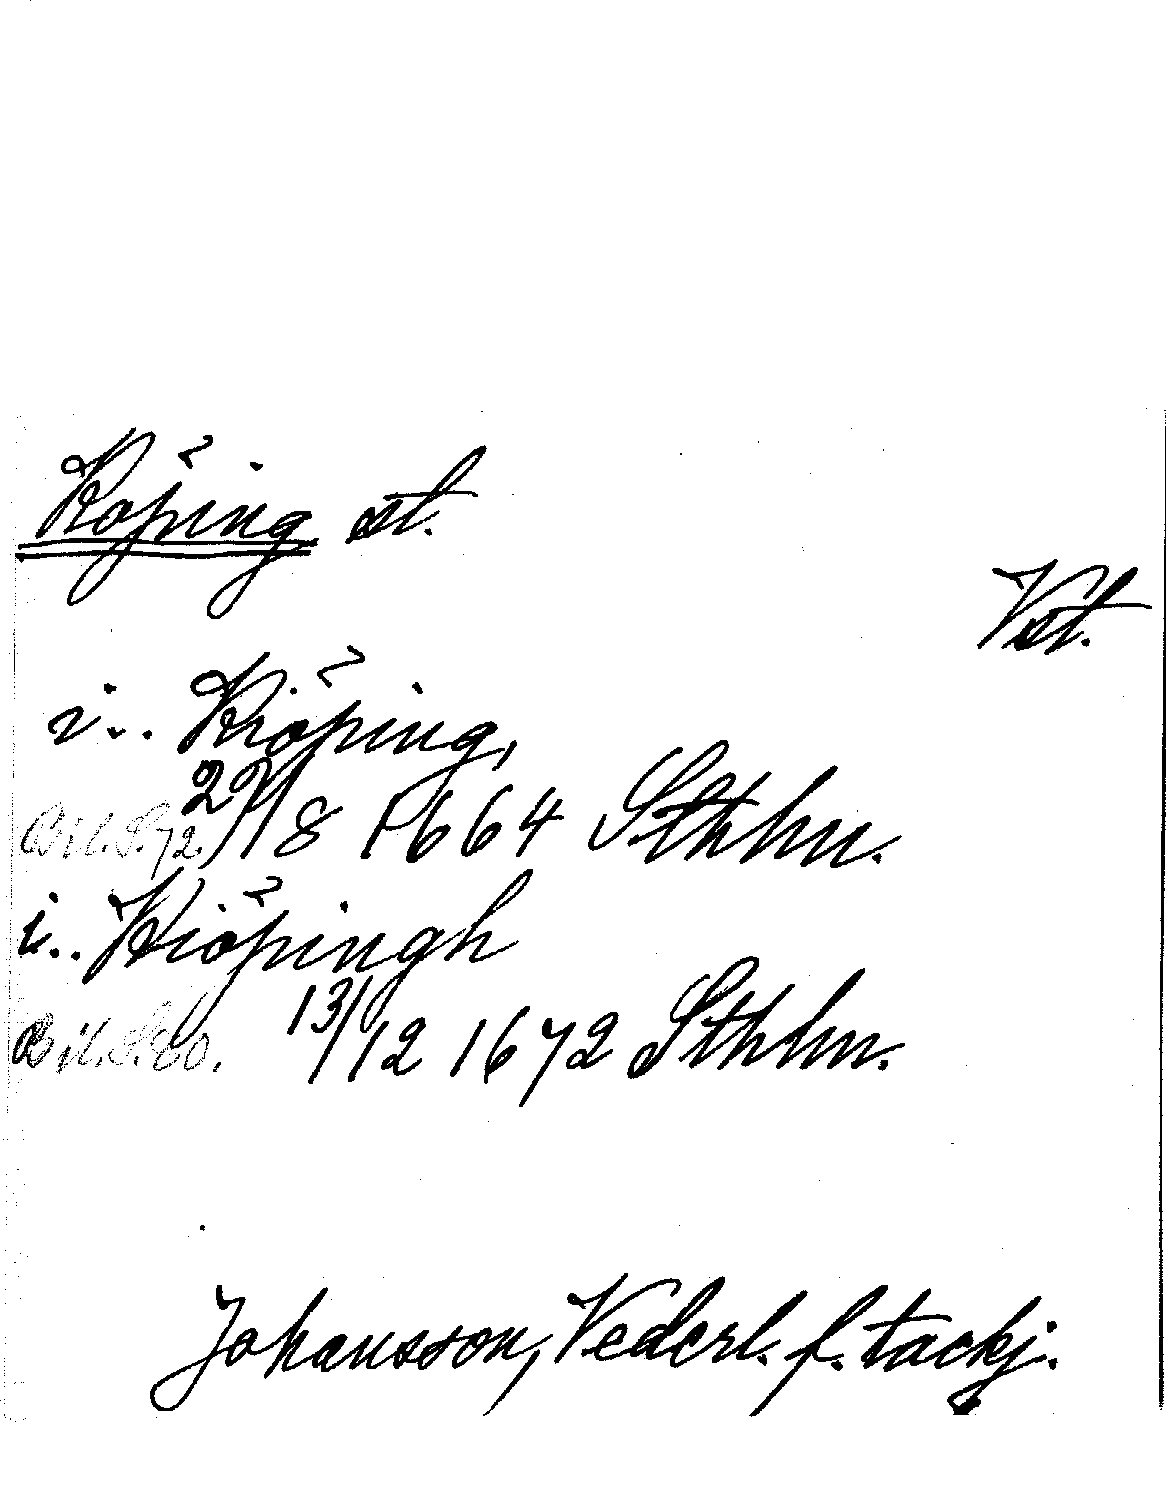 Köping st.
Vst.
i.. Kiöping,
22/8 1664 Sthlm.
Bil. S. 72.
i.. Kiöpingh
Bil. S. 80. 13/12 1672 Sthlm.
Johansson, Vederl. f. tackj.